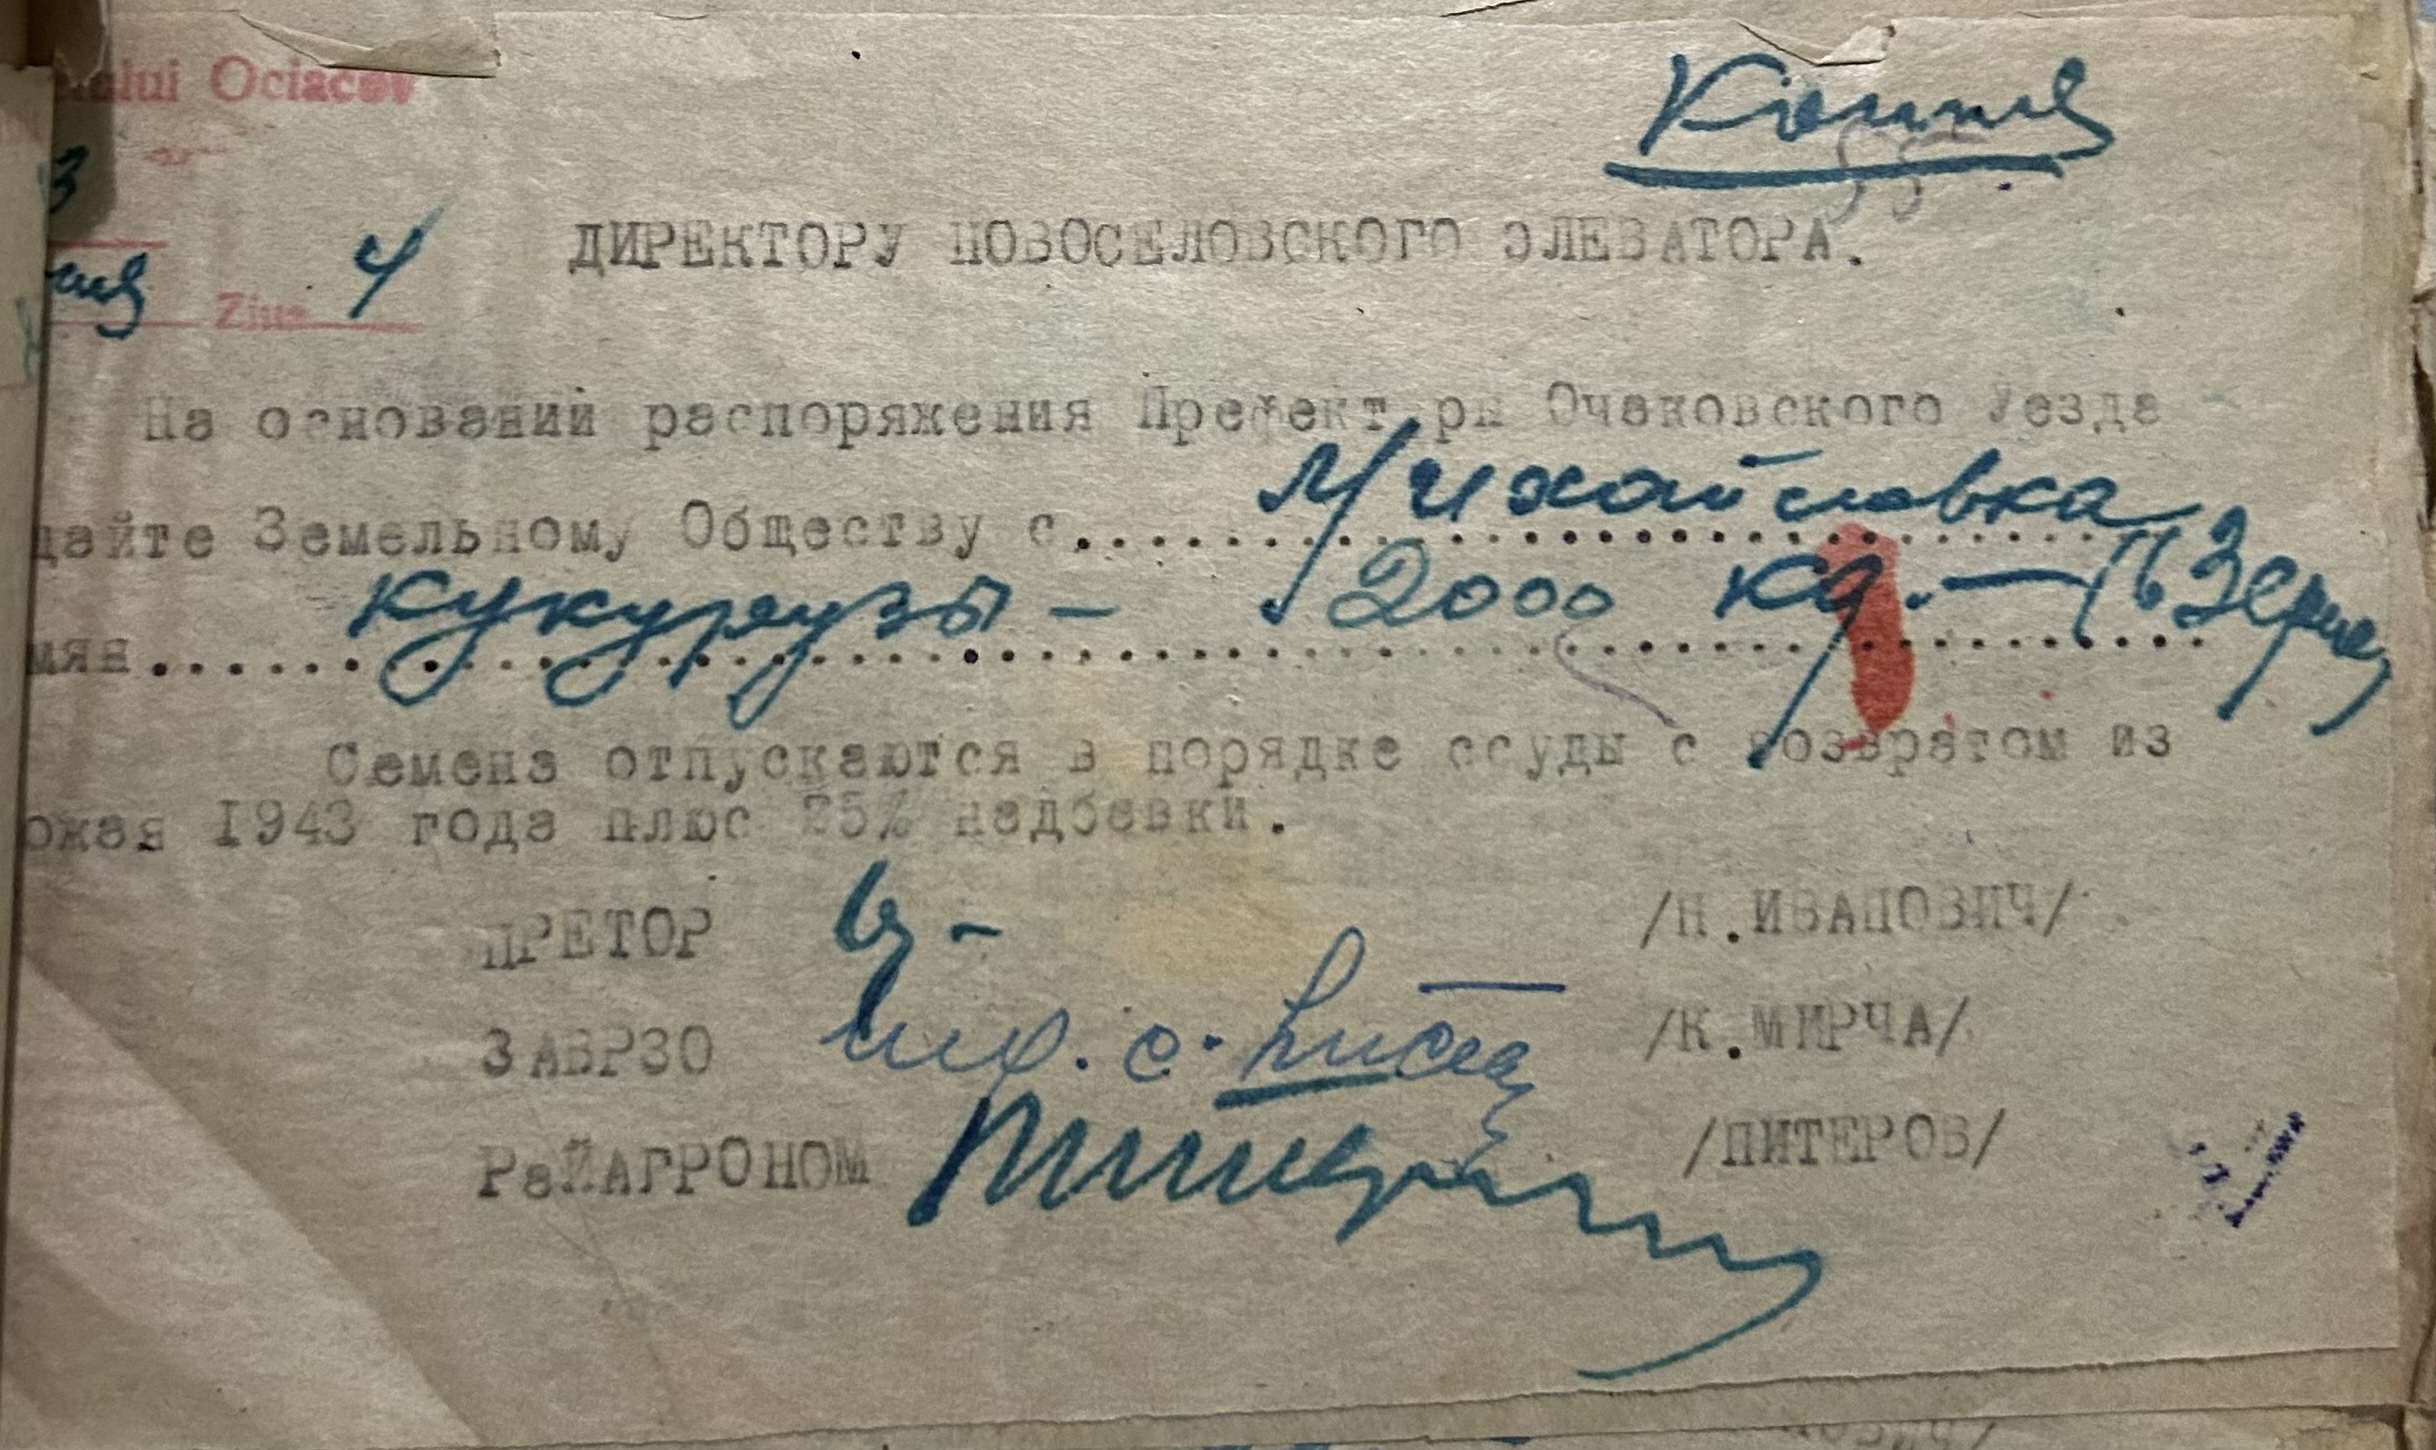 Ociacov
Копия
3
Ziua 4
ДИРЕКТОРУ НОВОСЕЛОВСКОГО ЭЛЕВАТОРА.
На основании распоряжения Префект ры Очаковского Уезда
дайте Земельному Обществу с. Михайловка
мян кукурузы - 2000 кг. —
Семена отпускаются в порядке ссуды с возвратом из
ожая 1943 года плюс 25% надбавки.
ПРЕТОР /Н.ИВАНОВИЧ/
ЗАВРЗО /К.МИРЧА/
РаЙАГРОНОМ /ПИТЕРОВ/